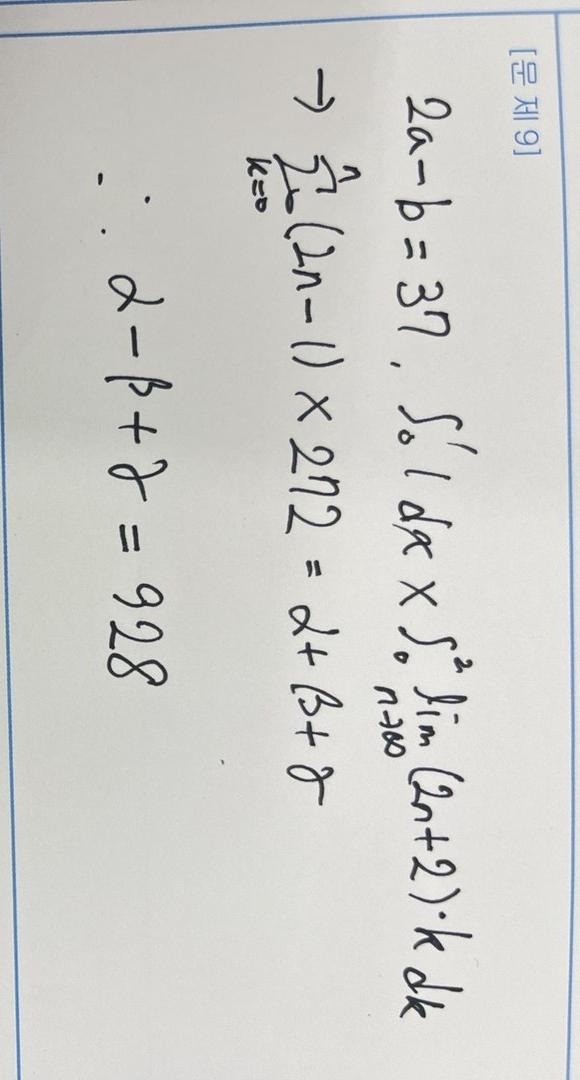 [문제 9]
2a-b=37, ∫₀¹ 1 dx × ∫₀² lim_{n→∞} (2n+2)·k dk
→ ∑_{k=0}^{n} (2n-1) × 272 = α+β+γ
∴ α-β+γ = 928